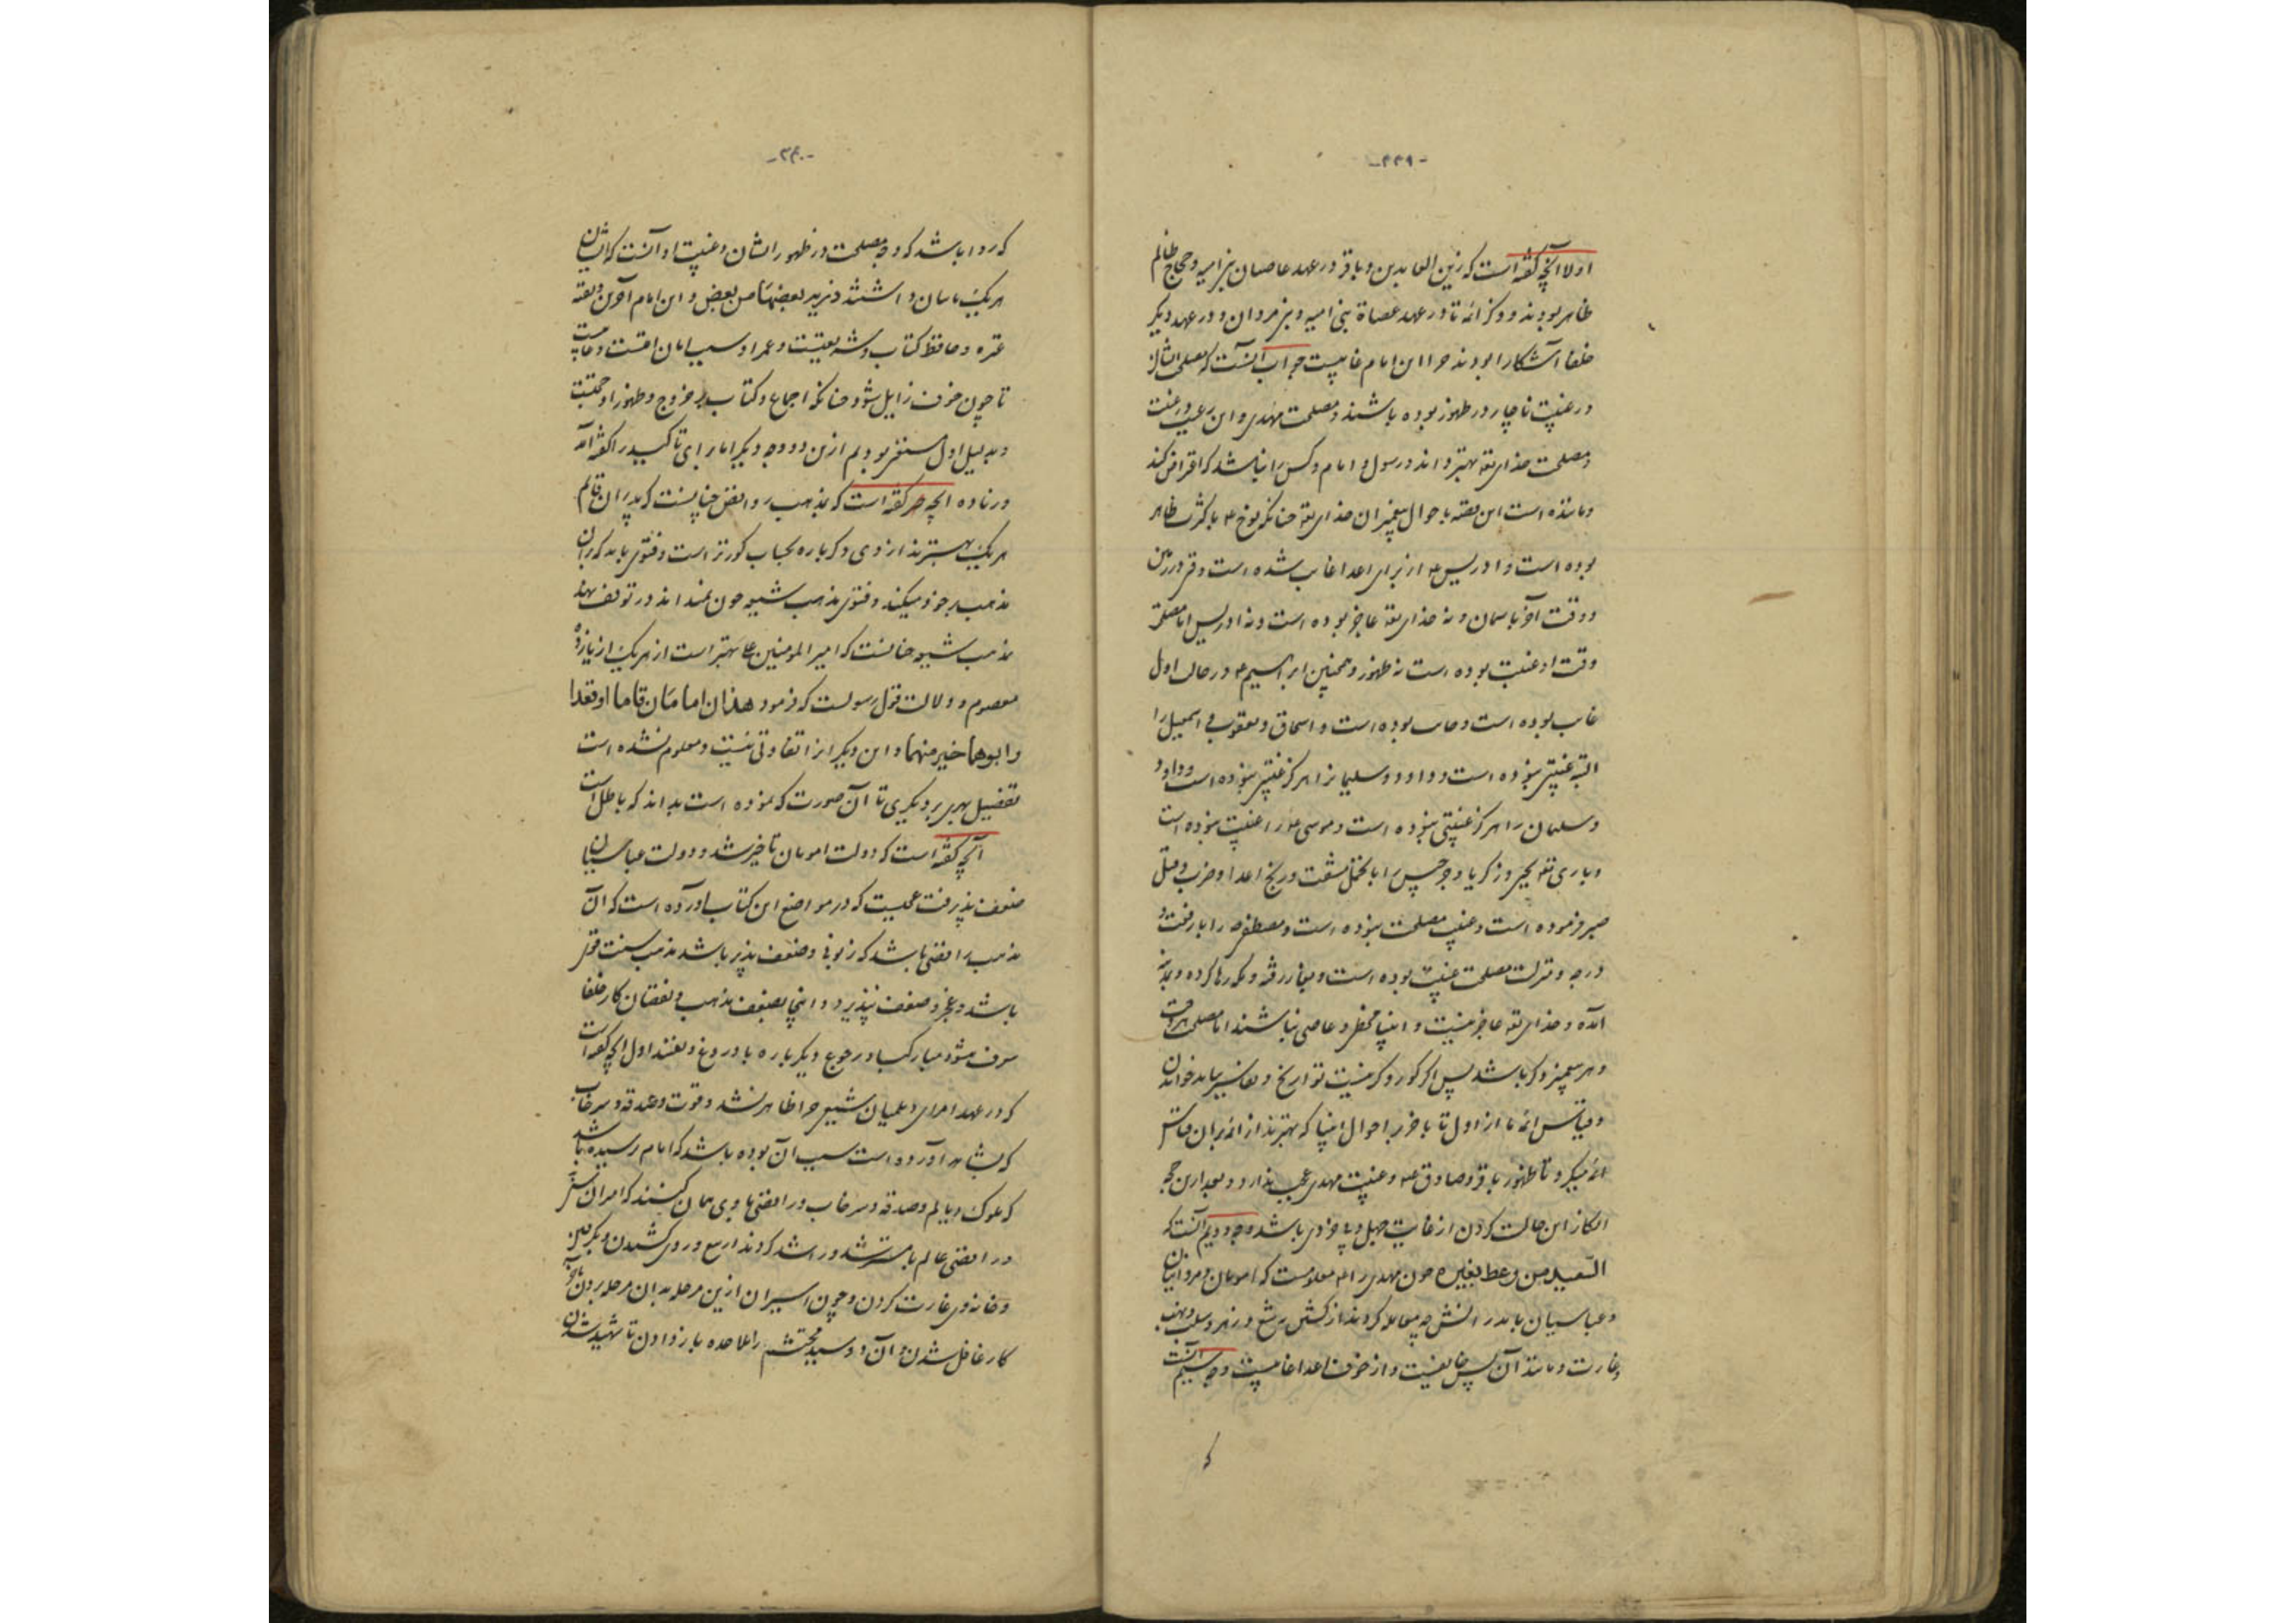 -۳۳۹-
اولا آنچه گفته است که زین العابدین و باقر در عهد عاصیان بنی امیه و حجاج ظالم
ظاهر بودند و دگر ائمه تا در عهد عصاة بنی امیه و بنی مروان و در عهد دیگر
خلفا آشکارا بودند چرا این امام غایبست جواب آنست که مصلحت ایشان
در غیبت ناچار در ظهور بوده باشد و مصلحت مهدی و این در غیبت
و مصلحت خدای تعه بهتر داند و رسول و امام و کس را نباشد که اعتراض کند
و مانده است این قصه باحوال پیغمبران خدای تعه چنانکه نوح ع باکثرت ظاهر
بوده است و ادریس ع از برای اعدا غایب شده است وقتی در زمین
و وقت آخر باسمان و نه خدای تعه عاجز بوده است و نه ادریس اما مصلحت
وقت او غیبت بوده است نه ظهور و همچنین ابراهیم ع در حالت اول
غایب بوده است و اسحاق و یعقوب و اسمعیل را
البته غیبتی نبوده است و داود و سلیمان را هرگز غیبتی نبوده است و داود
و سلیمان را هرگز غیبتی نبوده است و موسی را غیبت بوده است
و باری تعه یحیی و زکریا و جرجیس را با تحمل مشقت و رنج اعدا و ضرب و قتل
صبر فرموده است و غیبت مصلحت نبوده است و مصطفی ص را با رفعت و
درجه و منزلت مصلحت غیبت بوده است و بغار رفته و مکه رها کرده و بمدینه
آمده و خدای تعه عاجز نیست و انبیا مخطی و عاصی نباشند اما مصلحت هر وقت
و هر پیغمبر دگر باشد پس اگر کور و کر نیست تواریخ و تفاسیر بباید خواندن
و قیاس ائمه ما از اول تا باخر باحوال انبیا که بهترند از ائمه بر آن قیاس
ائمه میکرد تا ظهور باقر و صادق ع و غیبت مهدی عجب ندارد و بعد ازین حجه
انکار این حالت کردن از غایت جهل و بی خردی باشد وجه دویم آنست که
السّعید من وعظ بغیره چون مهدی را ع معلومست که امویان و مروانیان
و عباسیان با پدرانش چه معامله کردند از کشتن به تیغ و زهر و سلب و نهب
و غارت و مانند آن پس خایفست و از خوف اعدا غایبست وجه سیم آنست
که
-۳۴۰-
که روا باشد که وجه مصلحت در ظهور ایشان و غیبت او آنست که ایشان
هر یک نایبان داشتند ذریة بعضها من بعض و این امام آخرین و بقیه
عترة و حافظ کتاب و شریعتست و عمر او سبب امان امتست و غایبست
تا چون خوف زایل شود چنانکه اجماع و کتاب بر خروج و ظهور او حجتست
و بدلیل اول مستغنی بودیم ازین دو وجه دیگر اما برای تاکید را گفته آمد
و زیاده آنچه گفته است که مذهب روافض چنانست که پدران قایم
هر یک بهترند از وی دگر باره بحساب کورتر است و فتوی باید که بر آن
مذهب بر خود میکند و فتوی مذهب شیعه چون نمیداند در توقف نهد
مذهب شیعه چنانست که امیر المومنین علی بهتر است از هر یک از یازده
معصوم و دلالت قول رسولست که فرمود هذان امامان قاما او قعدا
وابوهما خیر منهما و این دیگران را تفاوتی نیست و معلوم نشده است
تفضیل یکی بر دیگری تا آن صورت که نموده است بداند که باطل است
آنچه گفته است که دولت امویان تاخیر شد و دولت عباسیان
ضعف پذیرفت عجبست که در مواضع این کتاب آورده است که آن
مذهب رافضی باشد که زبونی و ضعف پذیر باشد مذهب سنت قوی
باشد و عجز و ضعف نپذیرد و اینجا بضعف مذهب و نقصان کار خلفا
معترف میشود مبارکباد رجوع دیگرباره با دروغ و نقضند اول آنچه گفته است
که در عهد امرای دیلمیان شیعی چرا ظاهر نشد و قوت و صدقه و سرخاب
که بشاهد آورده است سبب آن بوده باشد که بامام رسیده باشد
که ملوک دیالم و صدقه و سرخاب و رافضی با وی همان کنند که امیران سنی
و رافضی عالم با مسترشد و راشد کردند از تیغ در روی کشیدن و بگرفتن
و خانه وی غارت کردن و چون اسیران ازین مرحله بدان مرحله بردن
کار غافل شدن و آن دو سید محتشم را ملاحده باز دادن تا شهید شدن